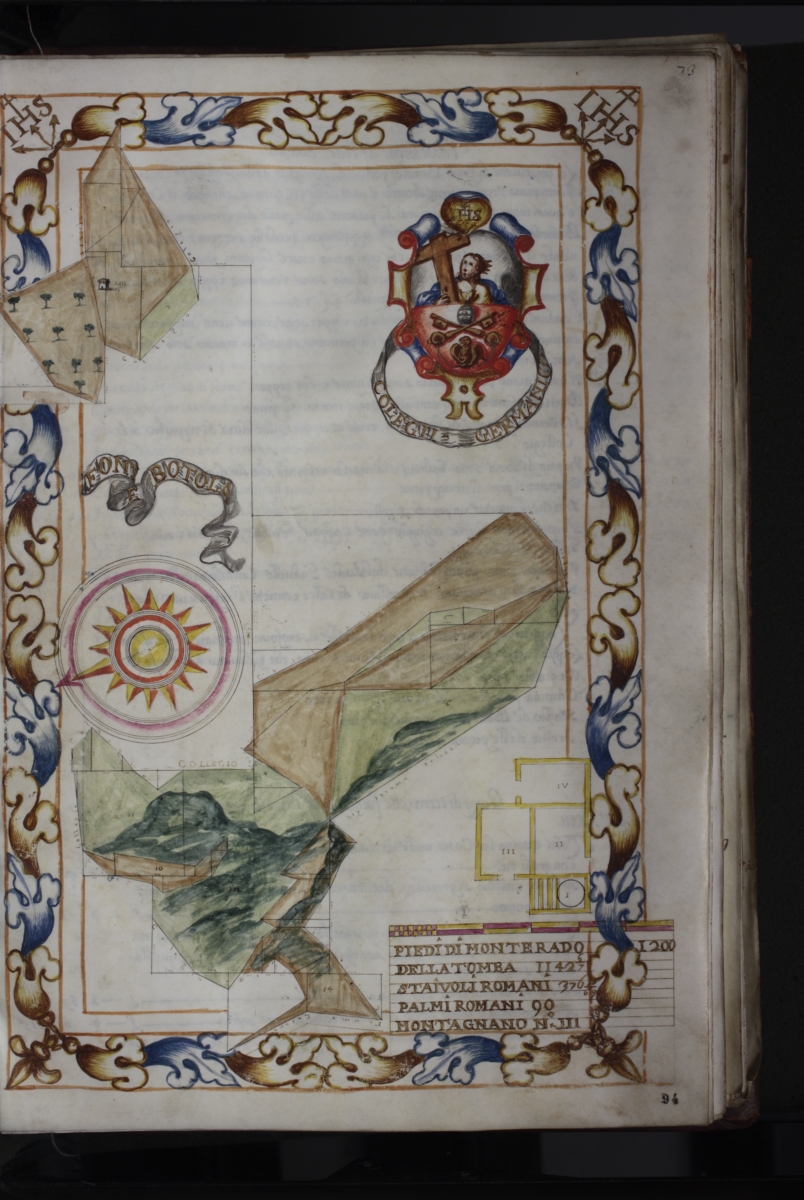 73
IHS
IHS
IHS
COLEGII GERMANICI
COLLEGIO
IV
III
II
I
10
14
PIEDI DI MONTERADO 1200
DELLA TOMBA 11427
STAIVOLI ROMANI 376
PALMI ROMANI 90
MONTAGNANO N. III
94